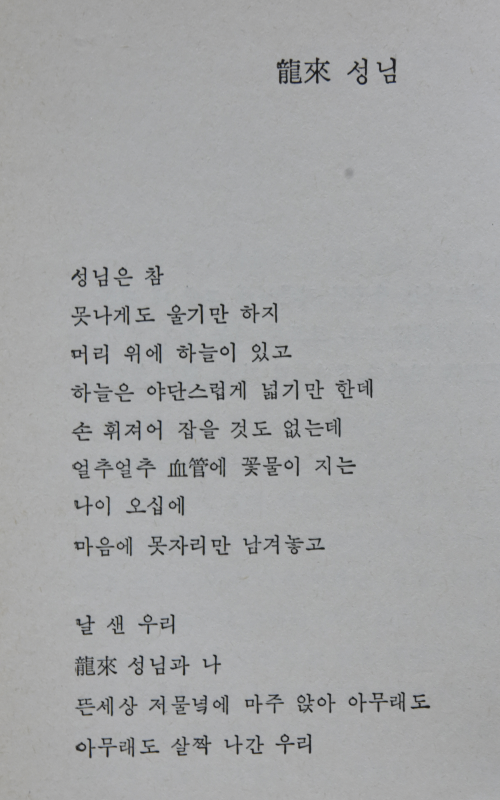 龍來 성님
성님은 참
못나게도 울기만 하지
머리 위에 하늘이 있고
하늘은 야단스럽게 넓기만 한데
손 휘져어 잡을 것도 없는데
얼추얼추 血管에 꽃물이 지는
나이 오십에
마음에 못자리만 남겨놓고
날 샌 우리
龍來 성님과 나
뜬세상 저물녘에 마주 앉아 아무래도
아무래도 살짝 나간 우리